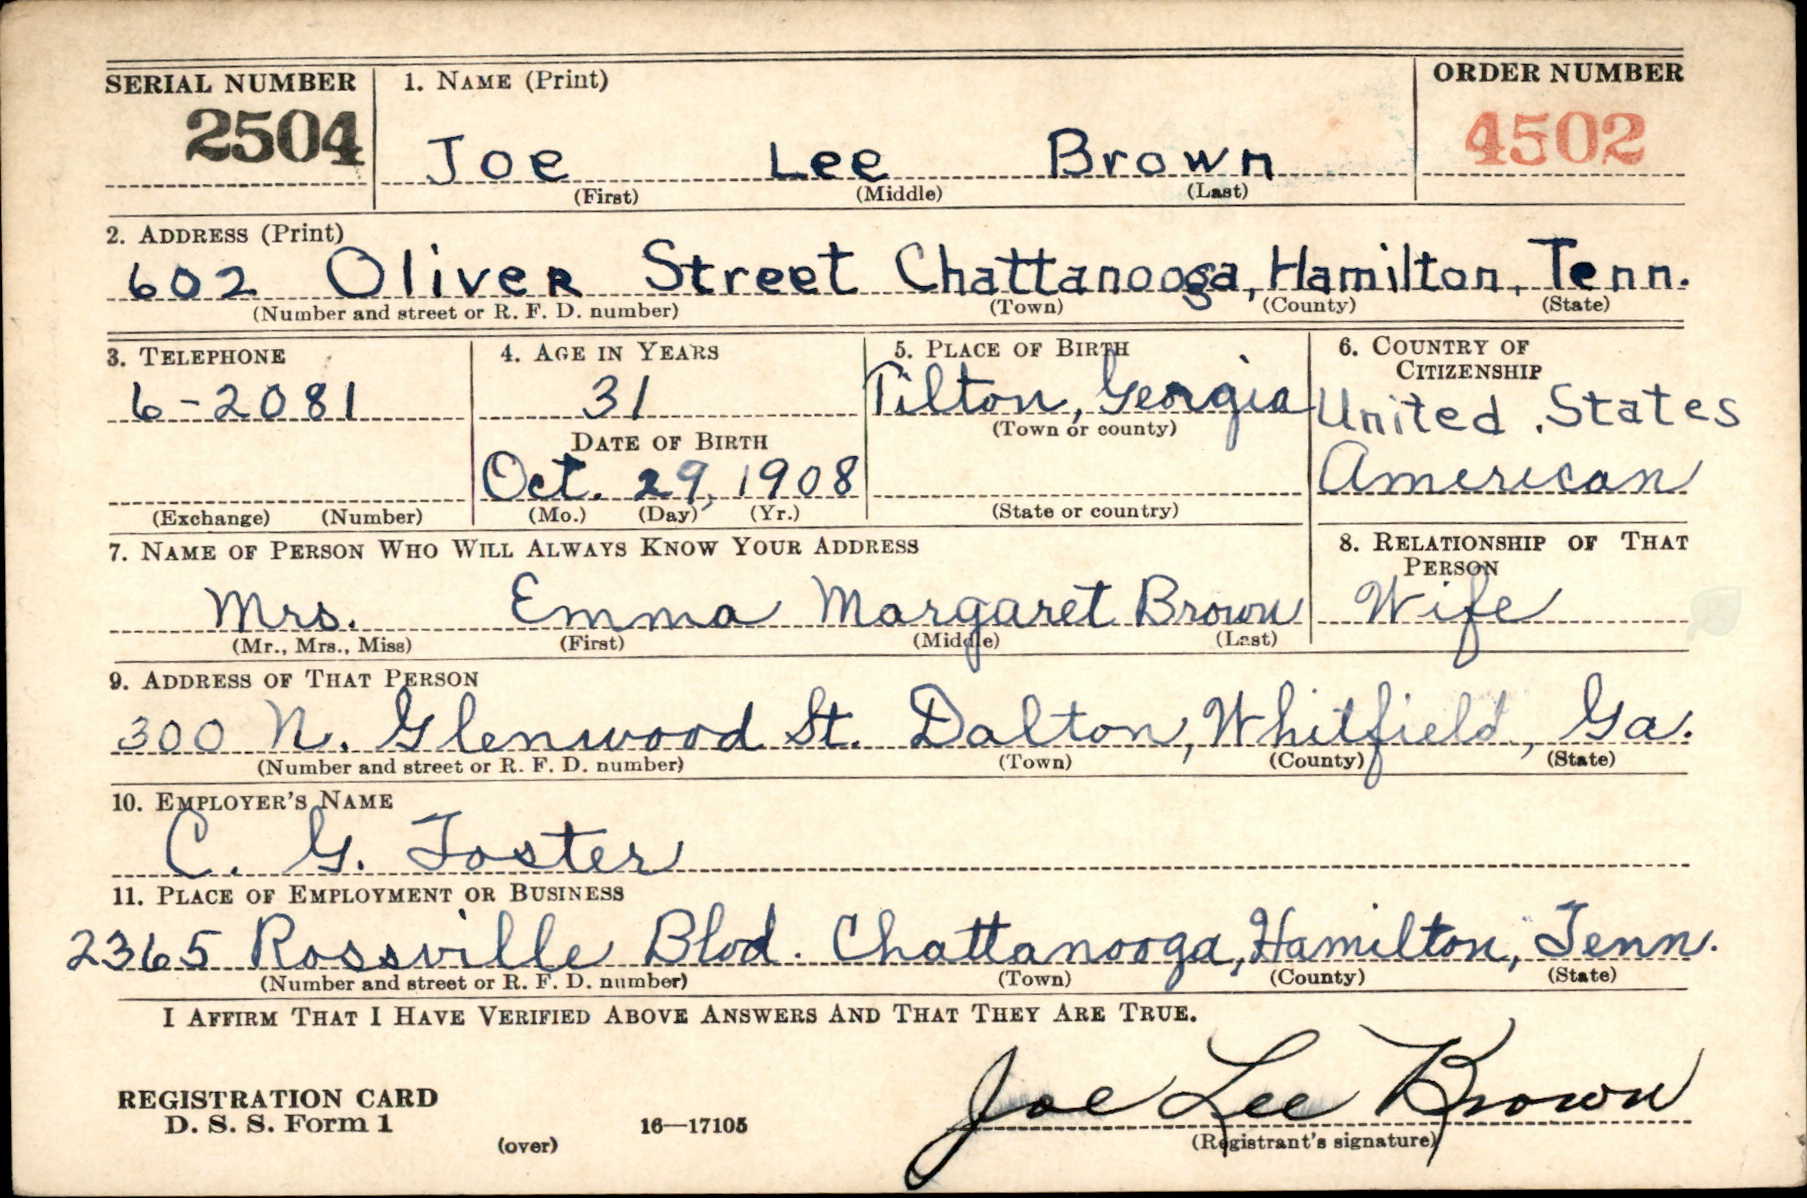 SERIAL NUMBER 1. NAME (Print) ORDER NUMBER
2504 Joe Lee Brown 4502
(First) (Middle) (Last)
2. ADDRESS (Print)
602 Oliver Street Chattanooga, Hamilton, Tenn.
(Number and street or R. F. D. number) (Town) (County) (State)
3. TELEPHONE 4. AGE IN YEARS 5. PLACE OF BIRTH 6. COUNTRY OF CITIZENSHIP
6-2081 31 Tilton, Georgia United States
(Town or county)
DATE OF BIRTH
Oct. 29, 1908 American
(Exchange) (Number) (Mo.) (Day) (Yr.) (State or country)
7. NAME OF PERSON WHO WILL ALWAYS KNOW YOUR ADDRESS 8. RELATIONSHIP OF THAT PERSON
Mrs. Emma Margaret Brown Wife
(Mr., Mrs., Miss) (First) (Middle) (Last)
9. ADDRESS OF THAT PERSON
300 N. Glenwood St. Dalton, Whitfield, Ga.
(Number and street or R. F. D. number) (Town) (County) (State)
10. EMPLOYER'S NAME
C. G. Foster
11. PLACE OF EMPLOYMENT OR BUSINESS
2365 Rossville Blvd. Chattanooga, Hamilton, Tenn.
(Number and street or R. F. D. number) (Town) (County) (State)
I AFFIRM THAT I HAVE VERIFIED ABOVE ANSWERS AND THAT THEY ARE TRUE.
Joe Lee Brown
REGISTRATION CARD
D. S. S. Form 1 (over) 16—17105 (Registrant's signature)